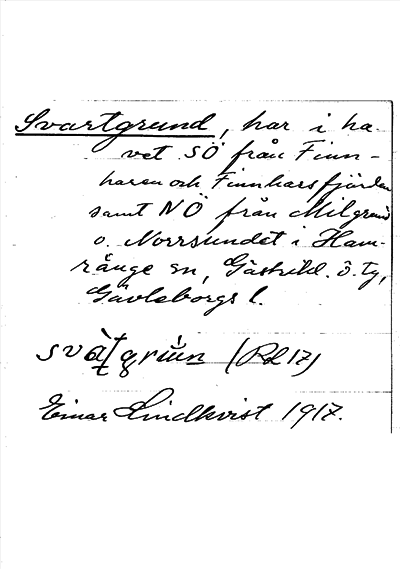 Svartgrund, har i ha-
vet SÖ från Finn-
haren och Finnharsfjärden
samt NÖ från Milgrund
o. Norrsundet i Ham-
rånge sn, Gästrikl. ö. tg,
Gävleborgs l.
(Rd 17)
Einar Lindkvist 1917.